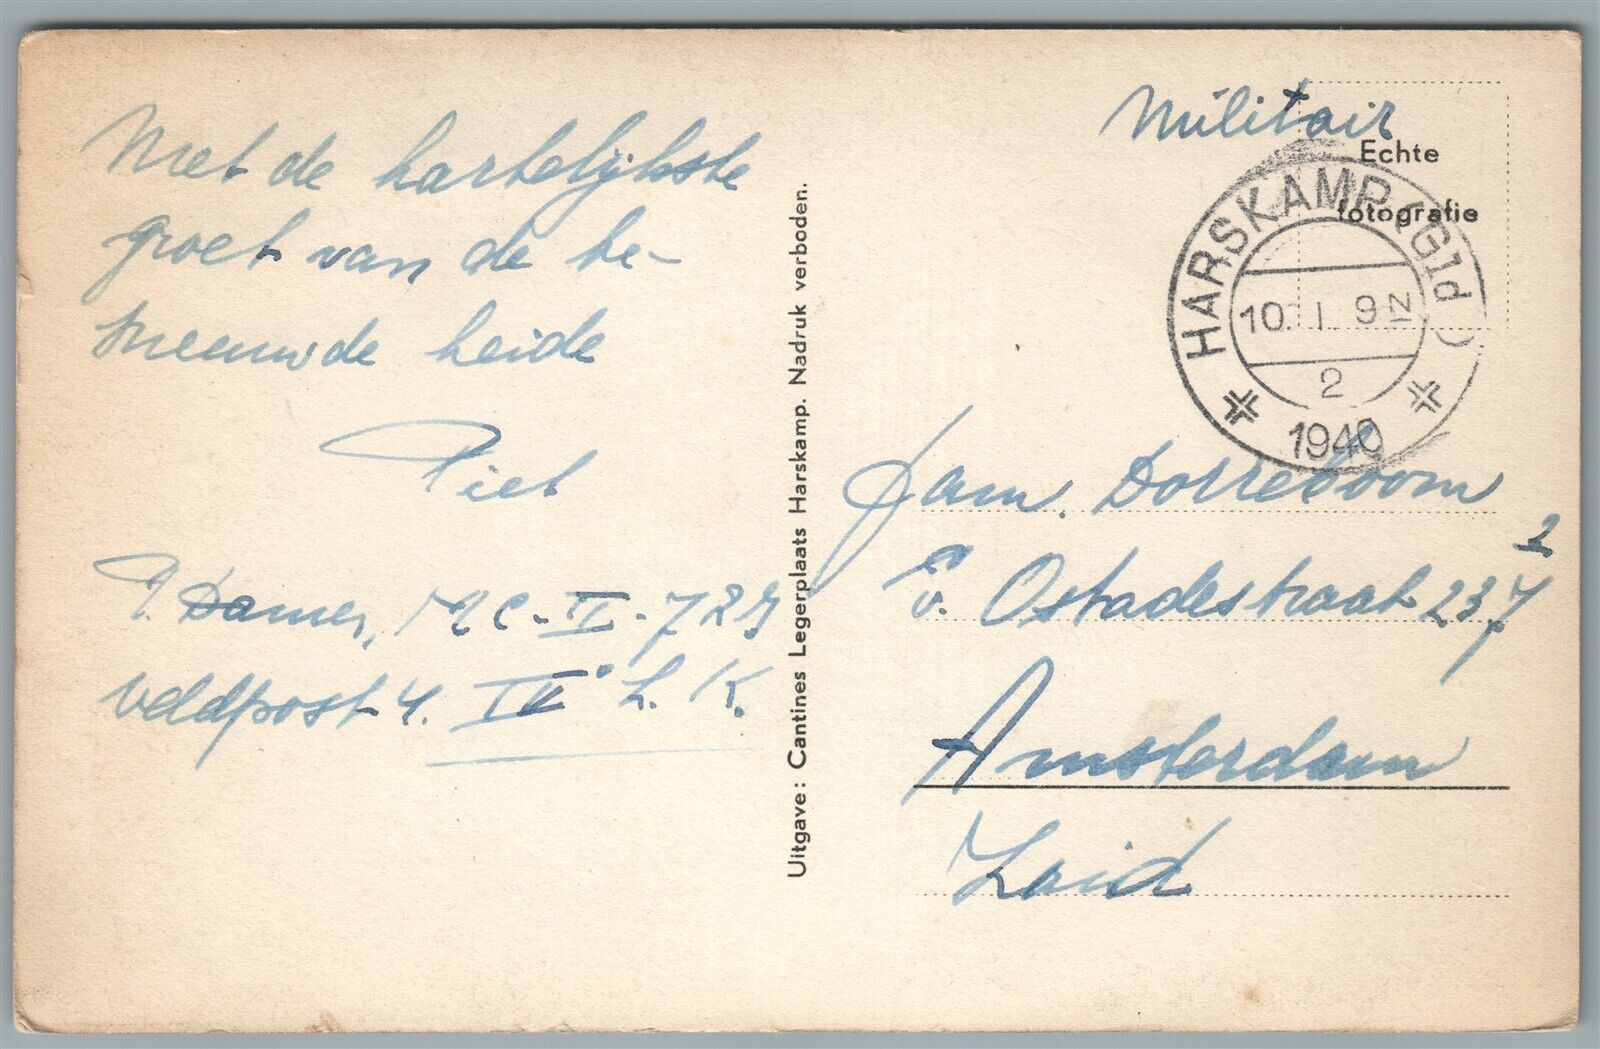 Met de hartelijkste
groet van de be-
sneeuwde heide
Piet
P. Damen, M C - II - 7 R J
veldpost 4. IVe L. K.
Uitgave: Cantines Legerplaats Harskamp. Nadruk verboden.
Militair
Echte
fotografie
HARSKAMP (Gld)
10. I. 9 N
2
1940
Fam. Dorreboom
v. Ostadestraat 237 2
Amsterdam
Zuid